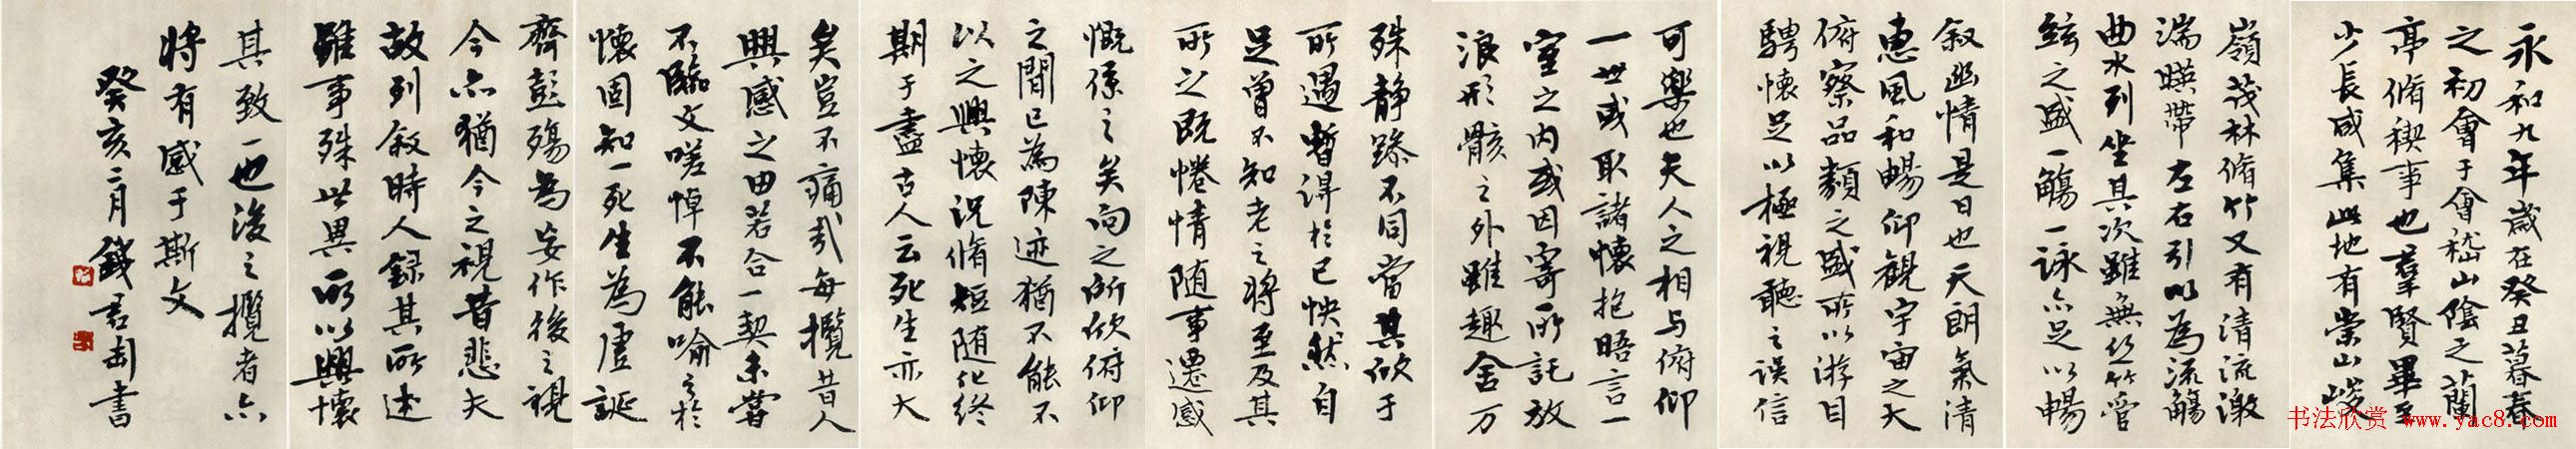 永和九年歲在癸丑暮春
之初會于會稽山陰之蘭
亭脩稧事也羣賢畢至
少長咸集此地有崇山峻
嶺茂林脩竹又有清流激
湍暎帶左右引以為流觴
曲水列坐其次雖無絲竹管
絃之盛一觴一詠亦足以暢
叙幽情是日也天朗氣清
惠風和暢仰觀宇宙之大
俯察品類之盛所以游目
騁懷足以極視聽之娛信
可樂也夫人之相與俯仰
一世或取諸懷抱晤言一
室之內或因寄所託放
浪形骸之外雖趣舍万
殊静躁不同當其欣于
所遇暫得於己怏然自
足曾不知老之將至及其
所之既惓情随事遷感
慨係之矣向之所欣俯仰
之間已為陳迹猶不能不
以之興懷況脩短随化終
期于盡古人云死生亦大
矣豈不痛哉每攬昔人
興感之由若合一契未嘗
不臨文嗟悼不能喻之於
懷固知一死生為虛誕
齊彭殤為妄作後之視
今亦猶今之視昔悲夫
故列叙時人錄其所述
雖事殊世異所以興懷
其致一也後之攬者亦
將有感于斯文
癸亥二月錢君匋書
书法欣赏 www.yac8.com